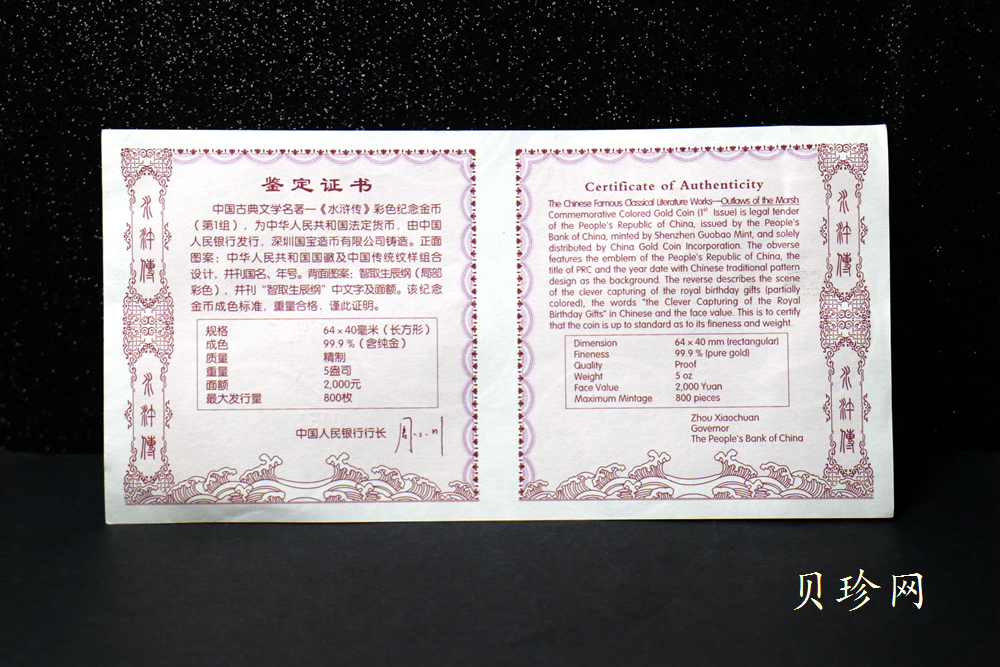 鉴定证书
中国古典文学名著—《水浒传》彩色纪念金币
（第1组），为中华人民共和国法定货币，由中国
人民银行发行，深圳国宝造币有限公司铸造。正面
图案：中华人民共和国国徽及中国传统纹样组合
设计，并刊国名、年号。背面图案：智取生辰纲（局部
彩色），并刊“智取生辰纲”中文字及面额。该纪念
金币成色标准，重量合格，谨此证明。
规格 64×40毫米（长方形）
成色 99.9％（含纯金）
质量 精制
重量 5盎司
面额 2,000元
最大发行量 800枚
中国人民银行行长 周小川
水浒傳
水浒傳
Certificate of Authenticity
The Chinese Famous Classical Literature Works—Outlaws of the Marsh
Commemorative Colored Gold Coin (1st Issue) is legal tender
of the People's Republic of China, issued by the People's
Bank of China, minted by Shenzhen Guobao Mint, and solely
distributed by China Gold Coin Incorporation. The obverse
features the emblem of the People's Republic of China, the
title of PRC and the year date with Chinese traditional pattern
design as the background. The reverse describes the scene
of the clever capturing of the royal birthday gifts (partially
colored), the words "the Clever Capturing of the Royal
Birthday Gifts" in Chinese and the face value. This is to certify
that the coin is up to standard as to its fineness and weight.
Dimension 64 x 40 mm (rectangular)
Fineness 99.9 % (pure gold)
Quality Proof
Weight 5 oz
Face Value 2,000 Yuan
Maximum Mintage 800 pieces
Zhou Xiaochuan
Governor
The People's Bank of China
水浒傳
水浒傳
贝珍网